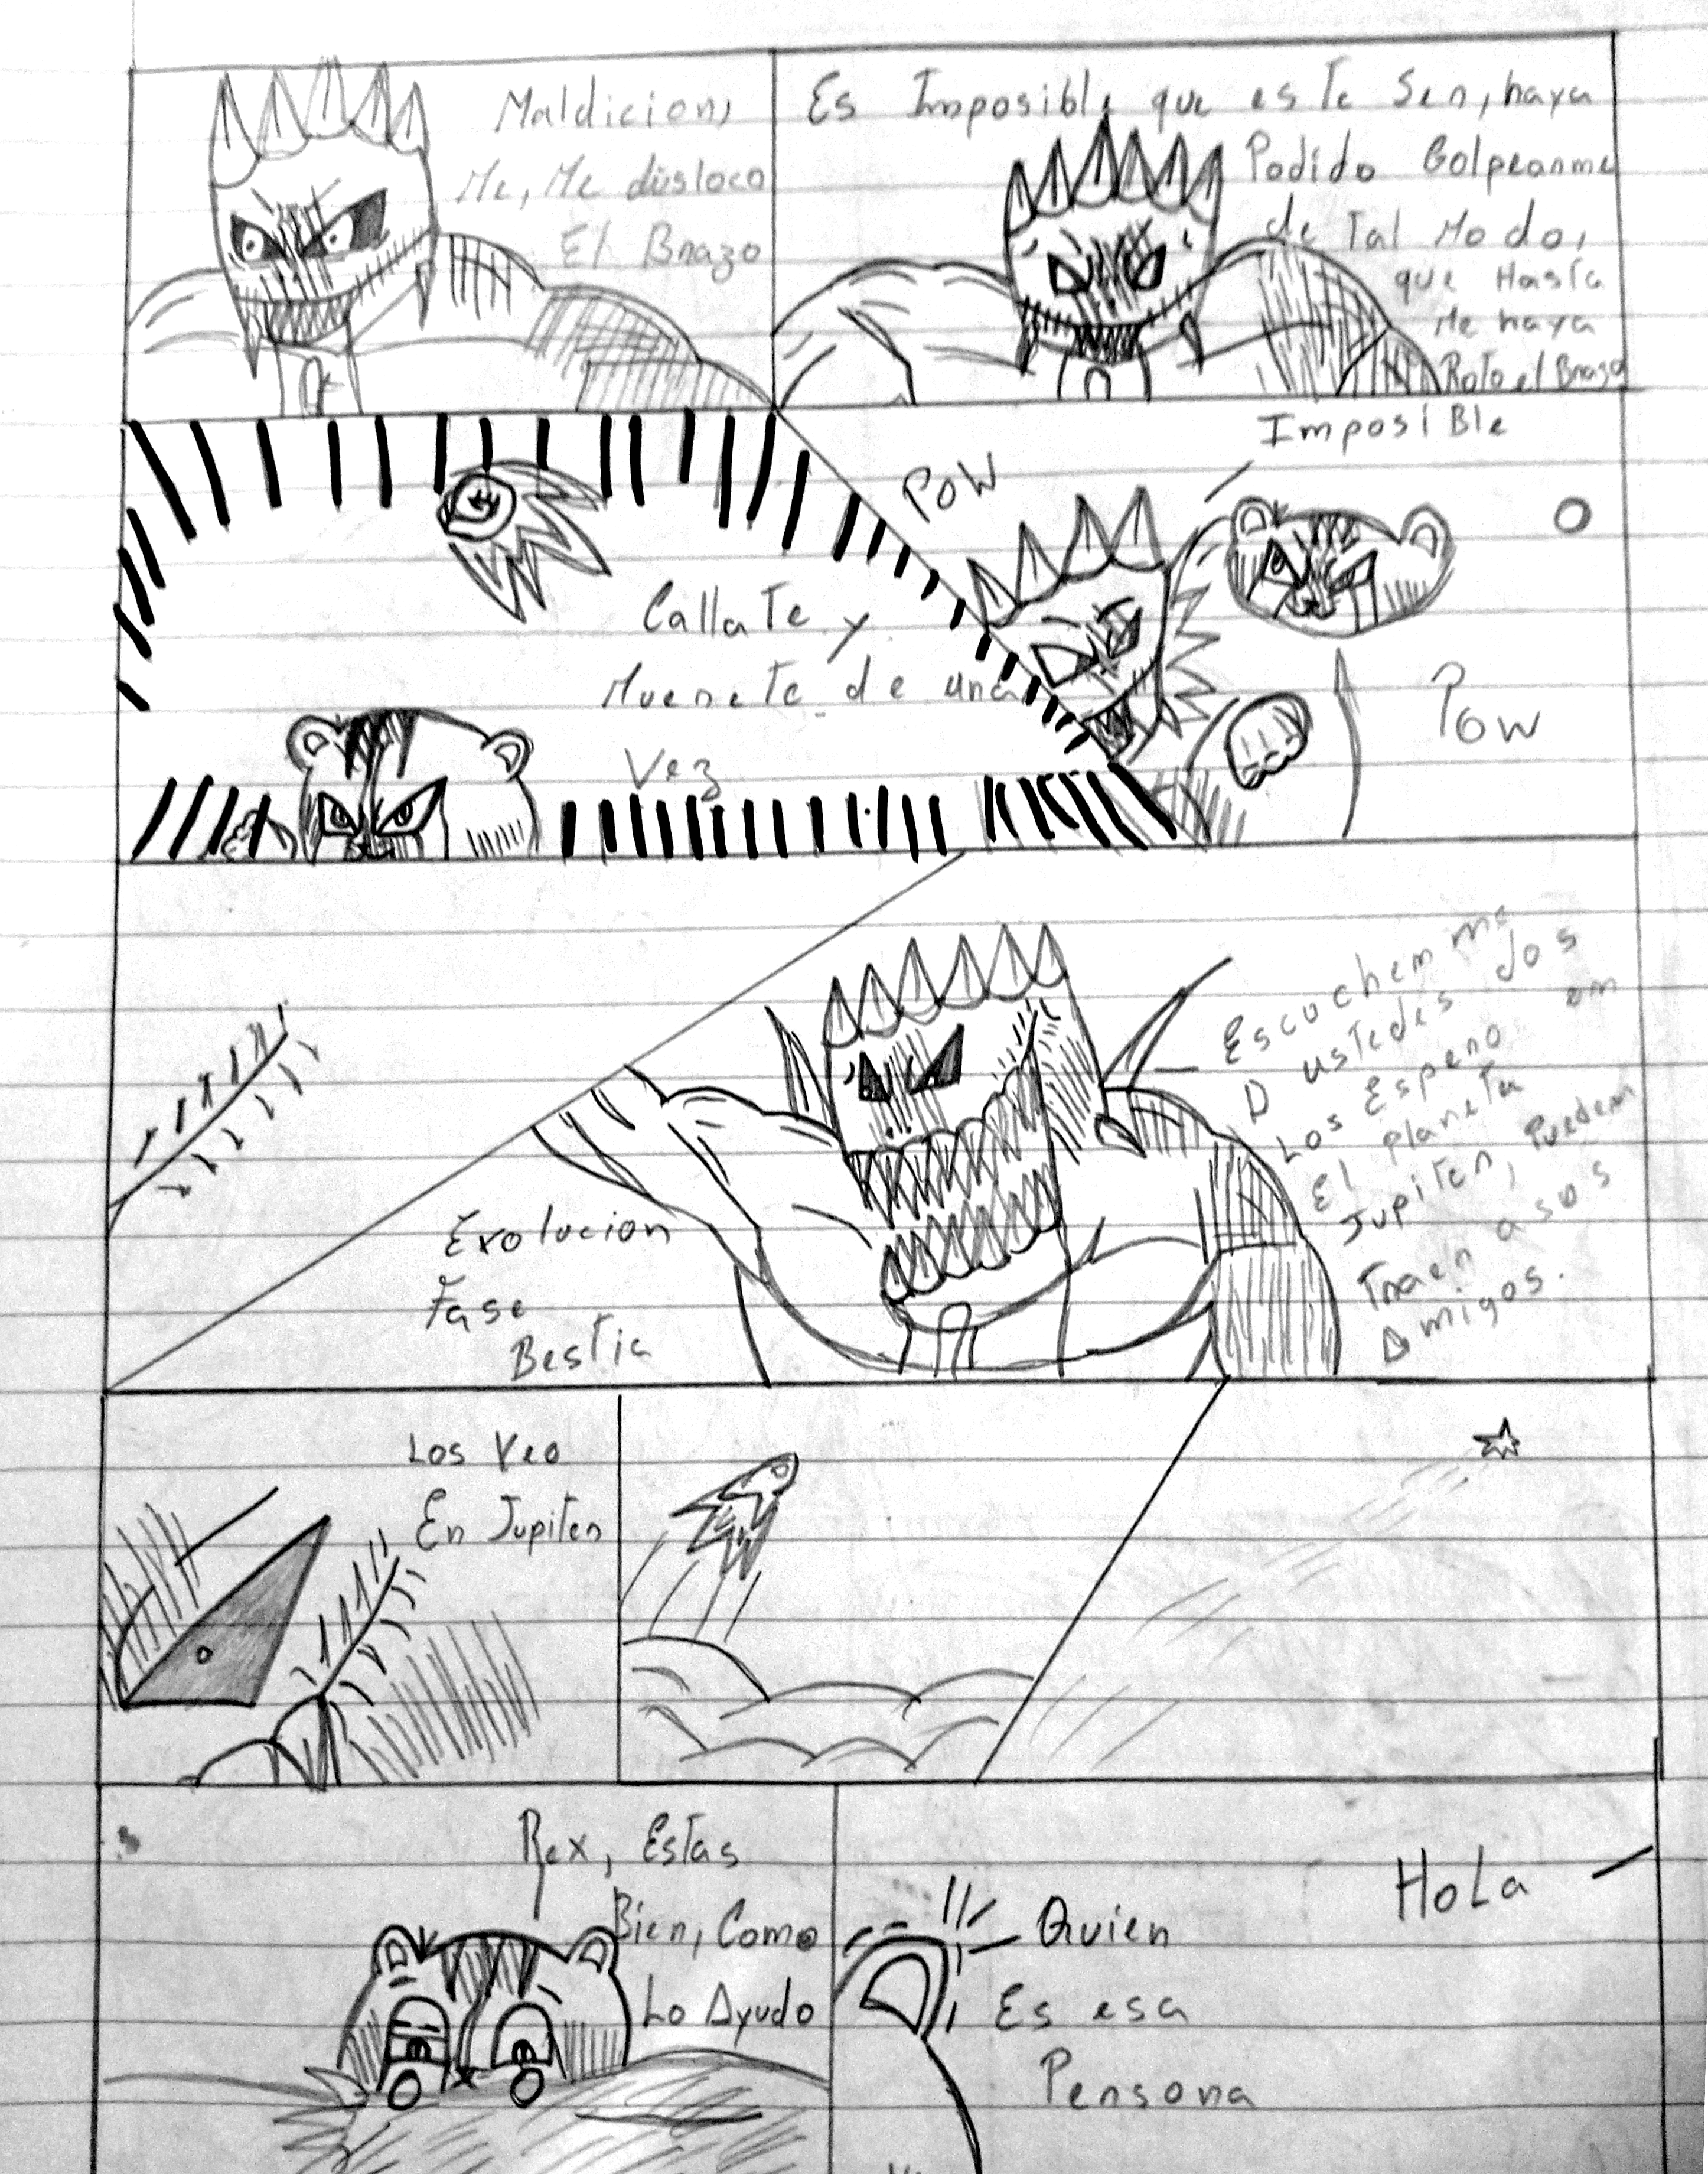 Maldicion,
Me, Me disloco
El Brazo
Es Imposible que este Ser, haya
Podido Golpearme
de Tal Modo,
que Hasta
Me haya
Roto el Brazo
Imposible
POW
Callate y
Muerete de una
Vez
Pow
Escuchem me
A ustedes dos
Los Espero en
El planeta
Jupiter, Pueden
Traer a sus
Amigos.
Evolucion
Fase
Bestia
Los Veo
En Jupiter
Rex, Estas
Bien, Como
Lo Ayudo
Hola
Quien
Es esa
Persona